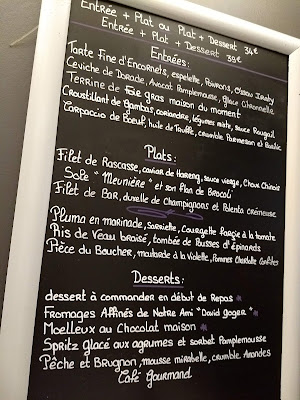 Entrée + Plat ou Plat + Dessert 34€
Entrée + Plat + Dessert 38€
Entrées:
Tarte Fine d'Encornets, espelette, Poivrons, Ossau Iraty
Ceviche de Dorade, Avocat Pamplemousse, glace Citronnelle
Terrine de foie gras maison du moment
Croustillant de Gambas, coriandre, légumes mixte, sauce Rougail
Carpaccio de Boeuf, huile de Truffe, crumble Parmesan et Basilic
Plats:
Filet de Rascasse, caviar de Hareng, sauce vierge, Choux Chinois
Sole "Meunière" et son Flan de Brocoli
Filet de Bar, duxelle de Champignons et Polenta crémeuse
Pluma en marinade, Sarriette, Courgette farçie à la tomate
Ris de Veau braisé, tombée de Pousses d'Epinards
Pièce du Boucher, moutarde à la Violette, Pommes Charlotte Confites
Desserts:
dessert à commander en début de Repas
Fromages Affinés de Notre Ami "David goger"
Moelleux au Chocolat maison
Spritz glacé aux agrumes et sorbet Pamplemousse
Pêche et Brugnon, mousse mirabelle, crumble Amandes
Café Gourmand